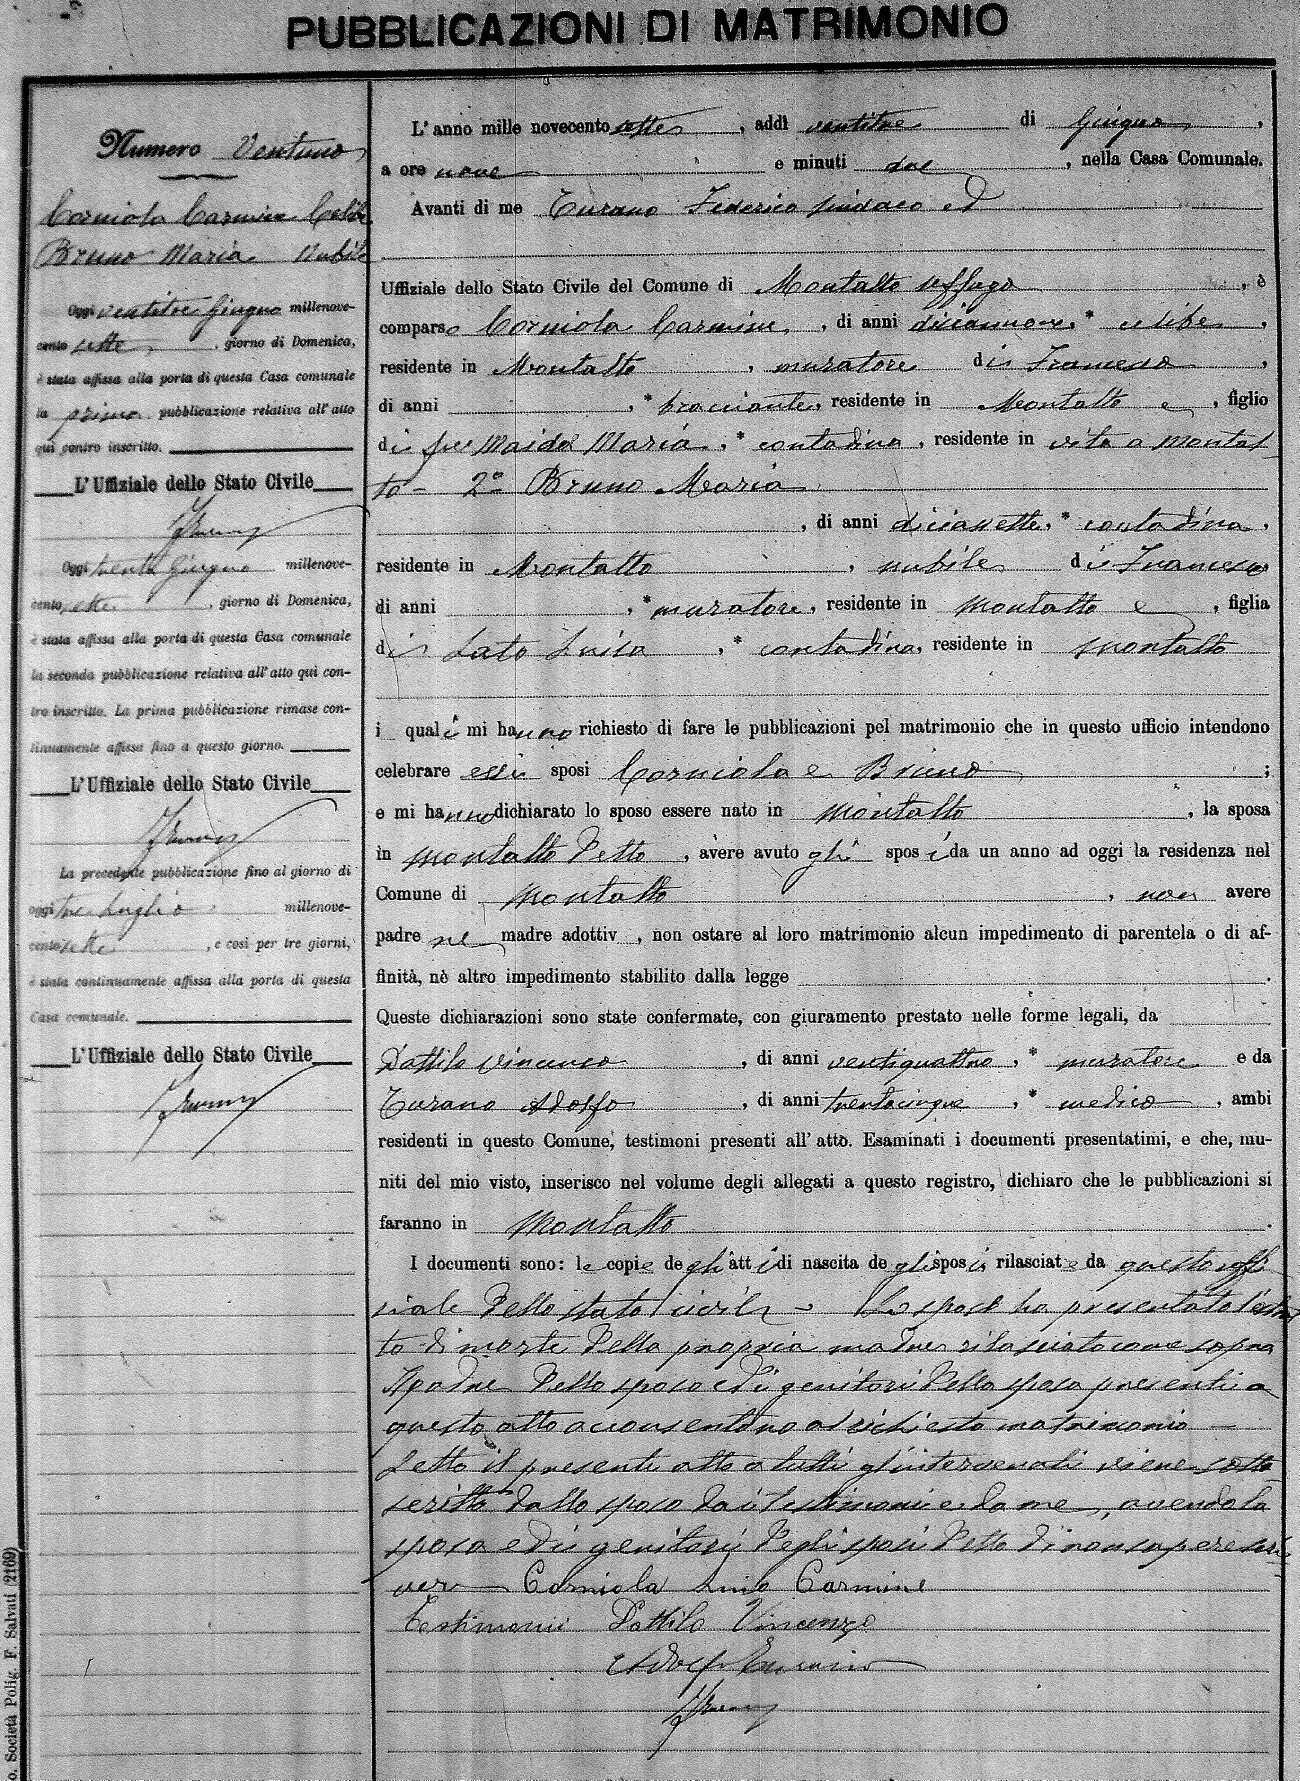 PUBBLICAZIONI DI MATRIMONIO
Numero Ventuno
Corniola Carmine Celibe
Bruno Maria Nubile
Oggi ventitre Giugno millenove-
cento sette, giorno di Domenica,
è stata affissa alla porta di questa Casa comunale
la prima pubblicazione relativa all'atto
quì contro inscritto.
L'Uffiziale dello Stato Civile
Oggi trenta Giugno millenove-
cento sette, giorno di Domenica,
è stata affissa alla porta di questa Casa comunale
la seconda pubblicazione relativa all'atto quì con-
tro inscritto. La prima pubblicazione rimase con-
tinuamente affissa fino a questo giorno.
L'Uffiziale dello Stato Civile
La precedente pubblicazione fino al giorno di
oggi tre Luglio millenove-
cento sette, e così per tre giorni,
è stata continuamente affissa alla porta di questa
Casa comunale.
L'Uffiziale dello Stato Civile
L'anno mille novecento sette, addì ventitre di Giugno,
a ore nove e minuti due, nella Casa Comunale.
Avanti di me Turano Federico sindaco ed
Uffiziale dello Stato Civile del Comune di Montalto Uffugo, è
comparso Corniola Carmine, di anni diciannove,* celibe,
residente in Montalto, muratore di Francesco,
di anni ,* bracciante, residente in Montalto e, figlio
di fu Maida Maria,* contadina, residente in vita a Montal
to - 2º Bruno Maria
, di anni diciassette,* contadina,
residente in Montalto, nubile di Francesco
di anni ,* muratore, residente in Montalto e, figlia
di Lato Luisa,* contadina, residente in Montalto
i quali mi hanno richiesto di fare le pubblicazioni pel matrimonio che in questo ufficio intendono
celebrare essi sposi Corniola e Bruno;
e mi hanno dichiarato lo sposo essere nato in Montalto, la sposa
in Montalto Detto, avere avuto gli sposi da un anno ad oggi la residenza nel
Comune di Montalto, non avere
padre nè madre adottiv , non ostare al loro matrimonio alcun impedimento di parentela o di af-
finità, nè altro impedimento stabilito dalla legge .
Queste dichiarazioni sono state confermate, con giuramento prestato nelle forme legali, da
Dattilo Vincenzo, di anni ventiquattro,* muratore e da
Turano Adolfo, di anni trentacinque,* medico, ambi
residenti in questo Comune, testimoni presenti all'atto. Esaminati i documenti presentatimi, e che, mu-
niti del mio visto, inserisco nel volume degli allegati a questo registro, dichiaro che le pubblicazioni si
faranno in Montalto.
I documenti sono: le copie degli atti di nascita degli sposi rilasciate da questo uffi
ziale Dello stato civile - Lo sposo ha presentato l'atto
to di morte Della propria madre rilasciato come sopra
Il padre Dello sposo e di i genitori Della sposa presenti a
questo atto acconsentono al richiesto matrimonio
Letto il presente atto a tutti gl'intervenuti viene sotto
scritto dallo sposo da i testimoni e da me, avendo la
sposa e di i genitori Degli sposi Detto Di non sapere scri
vere - Corniola Carmine
Testimonii Dattilo Vincenzo
Adolfo Turano
o. Società Polig. F. Salvati (2169)